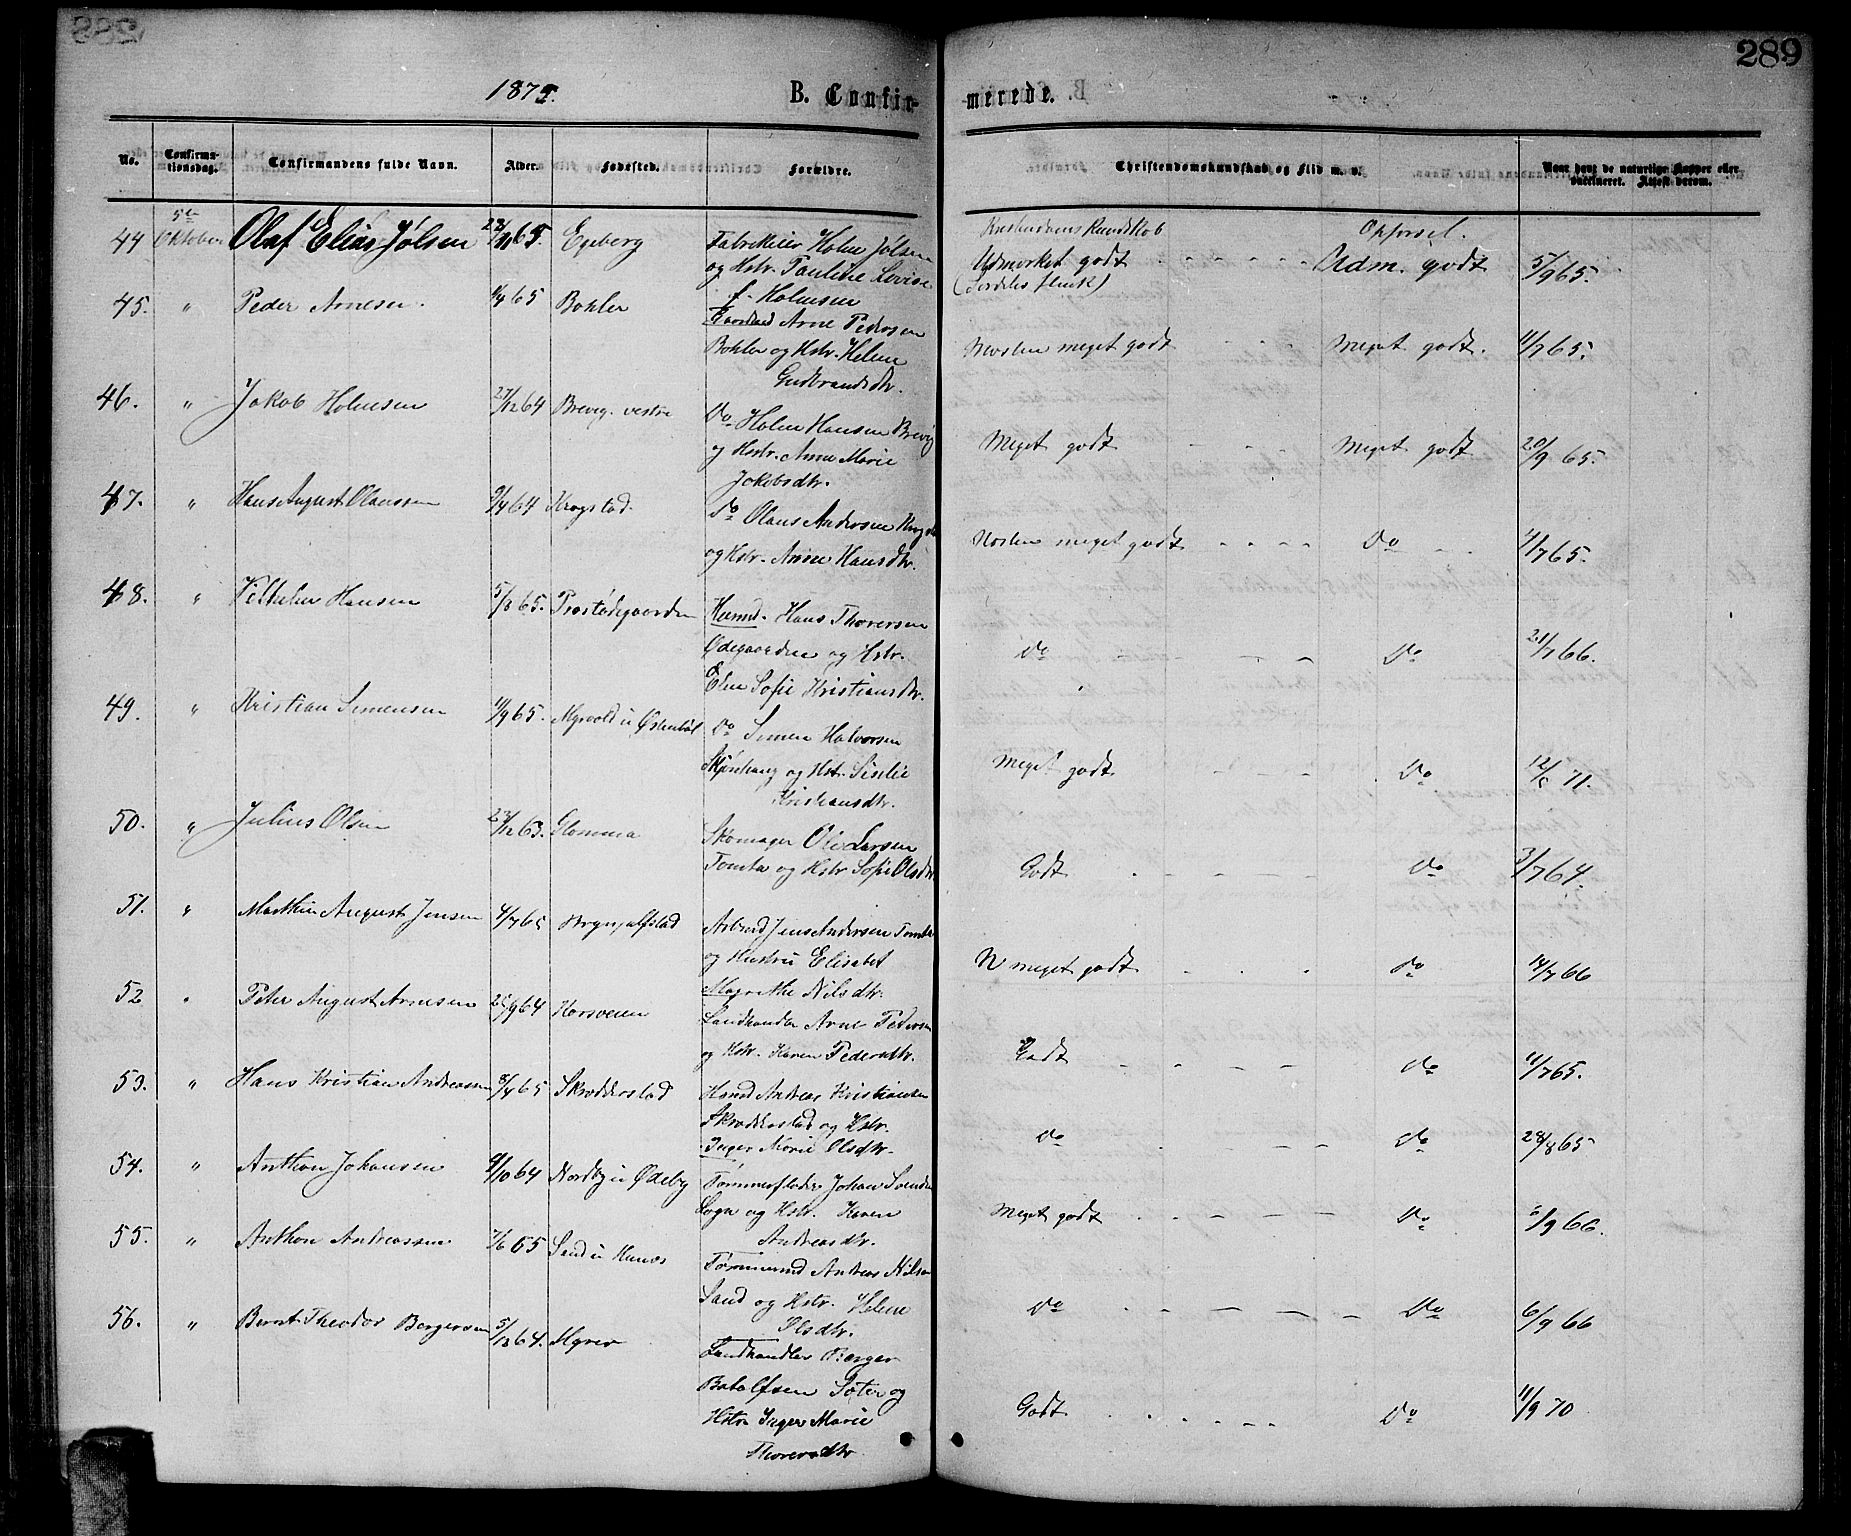 289
1879.
B. Confirmerede.
No.
Confirmationsdag.
Confirmandens fulde Navn.
Alder.
Fødested.
Forældre.
Christendomskundskab og Flid m. v.
Naar havt de naturlige Kopper eller vaccineret. Attest derom.
44 5te Oktober Olaf Elias Jølsen 65 Egeberg
Fabrikeier Holm Jølsen
og Hstr. Pauline Lovise
f. Holmsen
Kristendoms Kundskab Opførsel.
Udmærket godt Udm. godt 5/9 65.
(særdeles flink)
45. " Peder Arnesen 65 Bohler
Gaardmd Arne Pedersen
Bohler og Hstr. Helene
Gudbrandsdtr.
Næsten meget godt Meget godt. 11/7 65.
46. " Jakob Holmsen 27/12 64 Brevig vestre
Do Holm Hansen Brevig
og Hstr. Anne Marie
Jakobsdtr.
Meget godt Meget godt 20/9 65.
47. " Hans August Olaussen 9/4 64 Krogstad
Do Olaus Andersen
og Hstr. Anne Hansdtr.
Næsten meget godt Do 11/7 65.
48. " Vilhelm Hansen 65. Præstødegaarden
Huusmd. Hans Thoresen
Ødegaarden og Hstr.
Elen Sofie Kristiansdtr.
Do Do 21/7 66.
49. " Kristian Simensen 11/9 65. Myrvold u Østenbøl
Do Simen Halvorsen
og Hstr.
Kristiansdtr.
Meget godt Do 71.
50. " Julius Olsen 23/12 63. Glomma
Skomager Ole Larsen
Tomta og Hstr Sofie Olsdtr
Godt Do 3/7 64.
51. " Marthin August Jensen 4/7 65
Arbmd Jens Andersen
og Hustru Elisabet
Magrethe Nilsdtr.
N meget godt Do 14/7 66
52 " Peter August Arnesen 64 Korsveien
Landhandler Arne Pedersen
og Hstr. Karen Pedersdtr.
Godt Do 11/7 65.
53. " Hans Kristian Andreassen 8/4 65 Skrædderstad
Husmd Andreas Kristiansen
Skrædderstad og Hstr.
Inger Marie Olsdtr.
Do Do 28/8 65
54. " Anthon Johansen 9/10 64 Nordby u Ødeby
Tømmerfløder Johan
og Hstr. Karen
Andreasdtr.
Meget godt Do 6/9 66.
55. " Anthon Andreassen 7/6 65 Sand u Hunæs
Tømmermd Andreas Nilsen
Sand og Hstr. Helene
Olsdtr.
Do Do 6/9 66
56. " Bernt Theodor Bergersen 5/12 64. Myrer
Landhandler Berger
Botolfsen Sæter og
Hstr Inger Marie
Thoresdtr
Godt Do 11/9 70